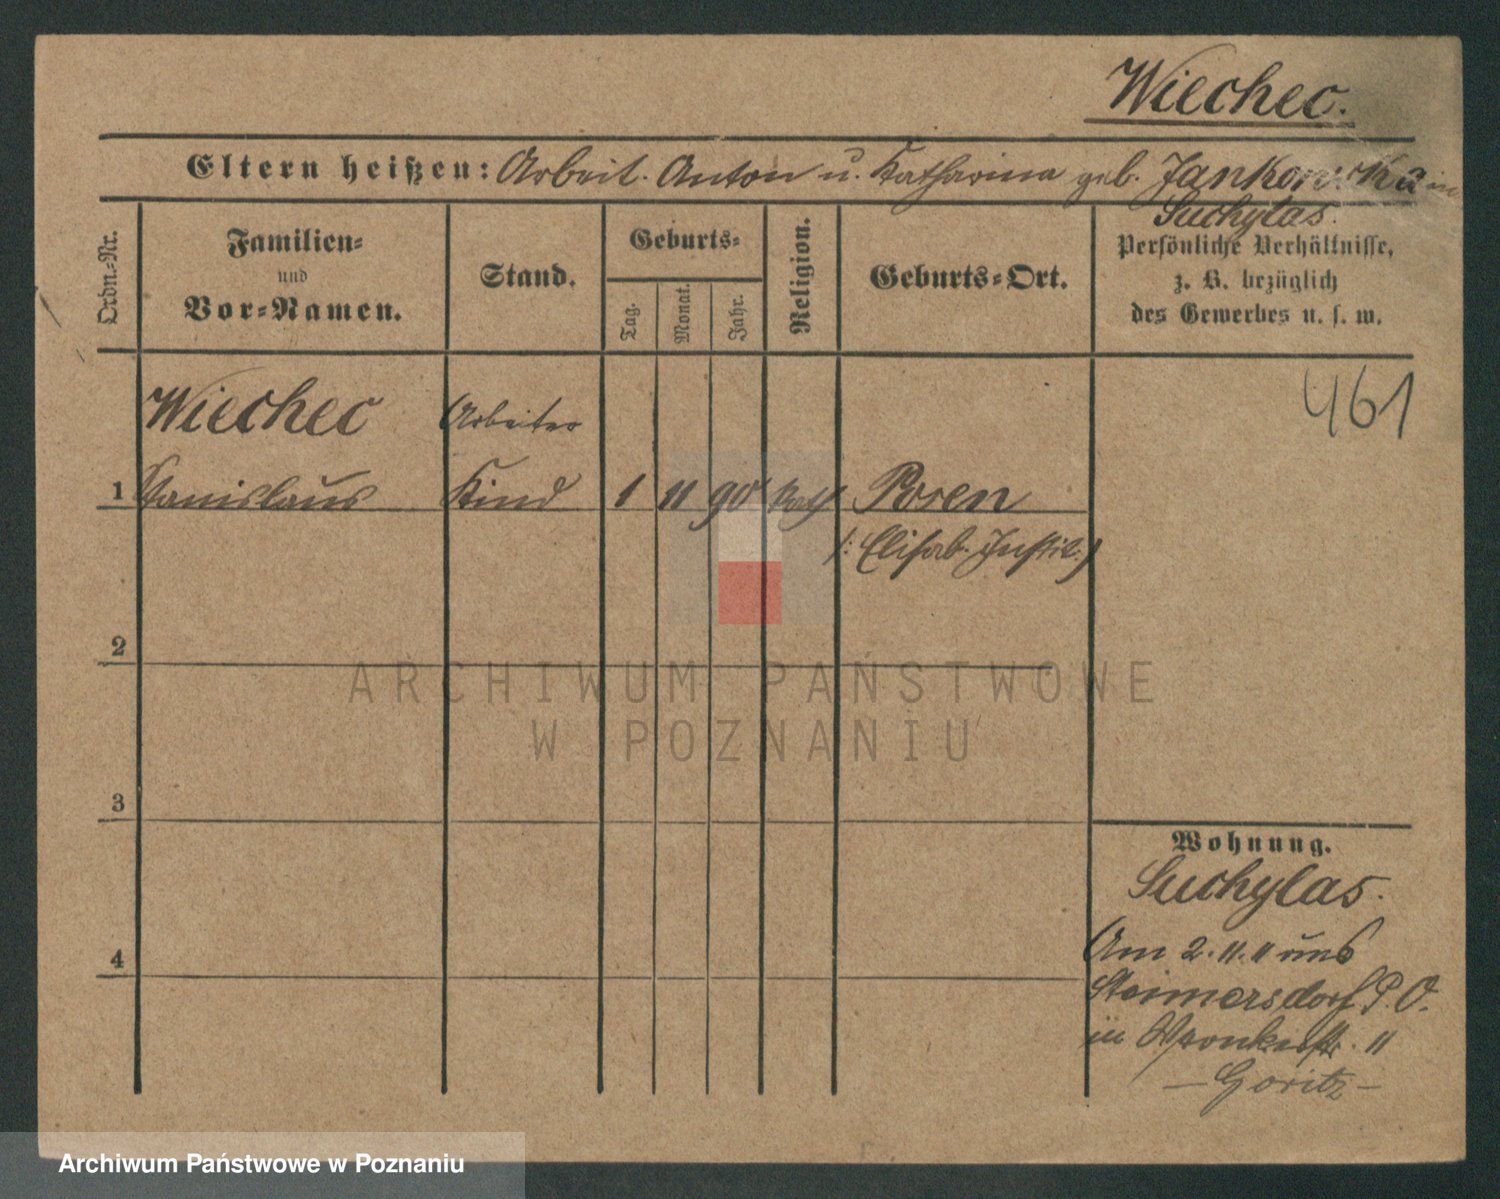 Wiechec.
Eltern heißen: Arbeit. Anton u. Katharina geb. Jankowska in
Suchylas.
Ordn.-Nr.
Familien-
und
Vor-Namen.
Stand.
Geburts-
Tag.
Monat.
Jahr.
Religion.
Geburts-Ort.
Persönliche Verhältnisse,
z. B. bezüglich
des Gewerbes u. s. w.
461
Wiechec Arbeiter
1 Stanislaus Kind 1 11 90 kath Posen
(: Elisab. Instit.)
2
3
4
Wohnung.
Suchylas.
Am 2. 11. 11 und
P. O.
in Wronkerstr. 11
— Goritz —
ARCHIWUM PAŃSTWOWE
W POZNANIU
Archiwum Państwowe w Poznaniu